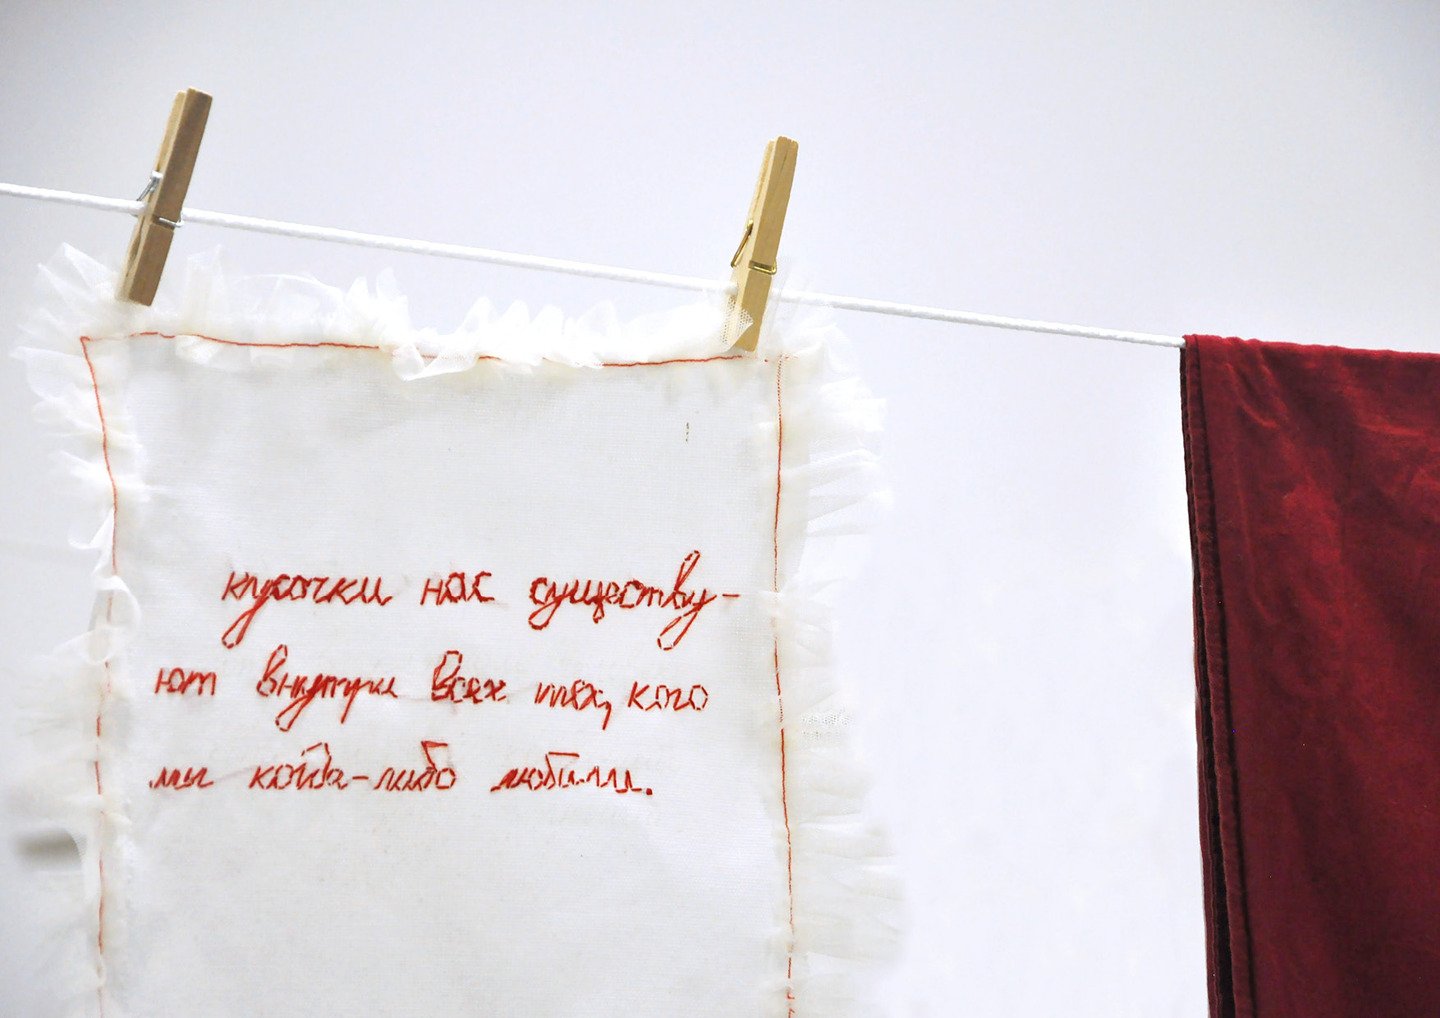 кусочки нас существу-
ют внутри всех тех, кого
мы когда-либо любили.